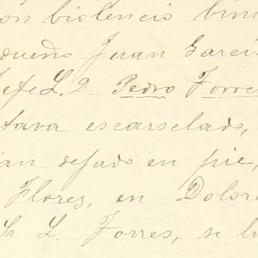 on violencia
dueño Juan Garcí
Jefe L. 2. Pedro Torre
tava escarselado,
an dejado en pie,
Flores, en Dolore
L. Torres, se lu